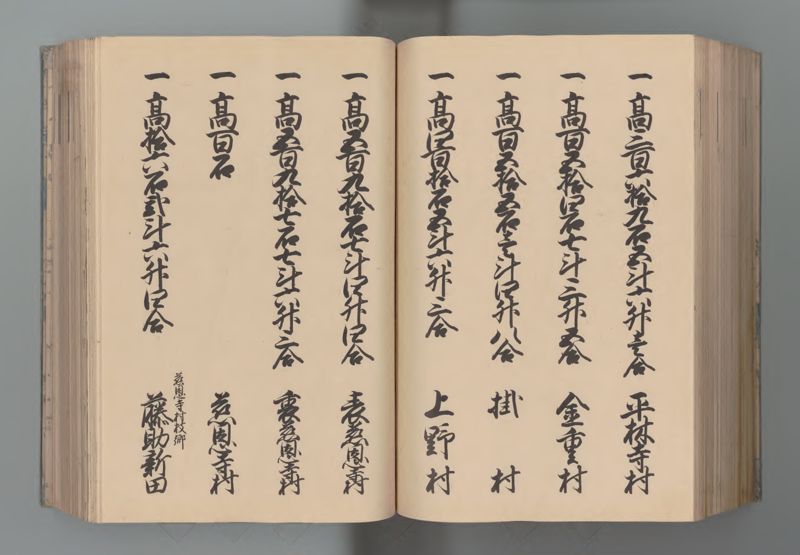 一 高三百六拾九石五斗六升壱合 平林寺村
一 高百五拾四石七斗三升五合 金重村
一 高百五拾五石壱斗四升八合 掛村
一 高四百拾石五斗六升三合 上野村
一 高五百九拾石七斗四升四合 表慈恩寺村
一 高五百九拾七石七斗六升三合 裏慈恩寺村
一 高百石 慈恩寺村
慈恩寺村枝郷
一 高拾六石弐斗六升四合 藤助新田